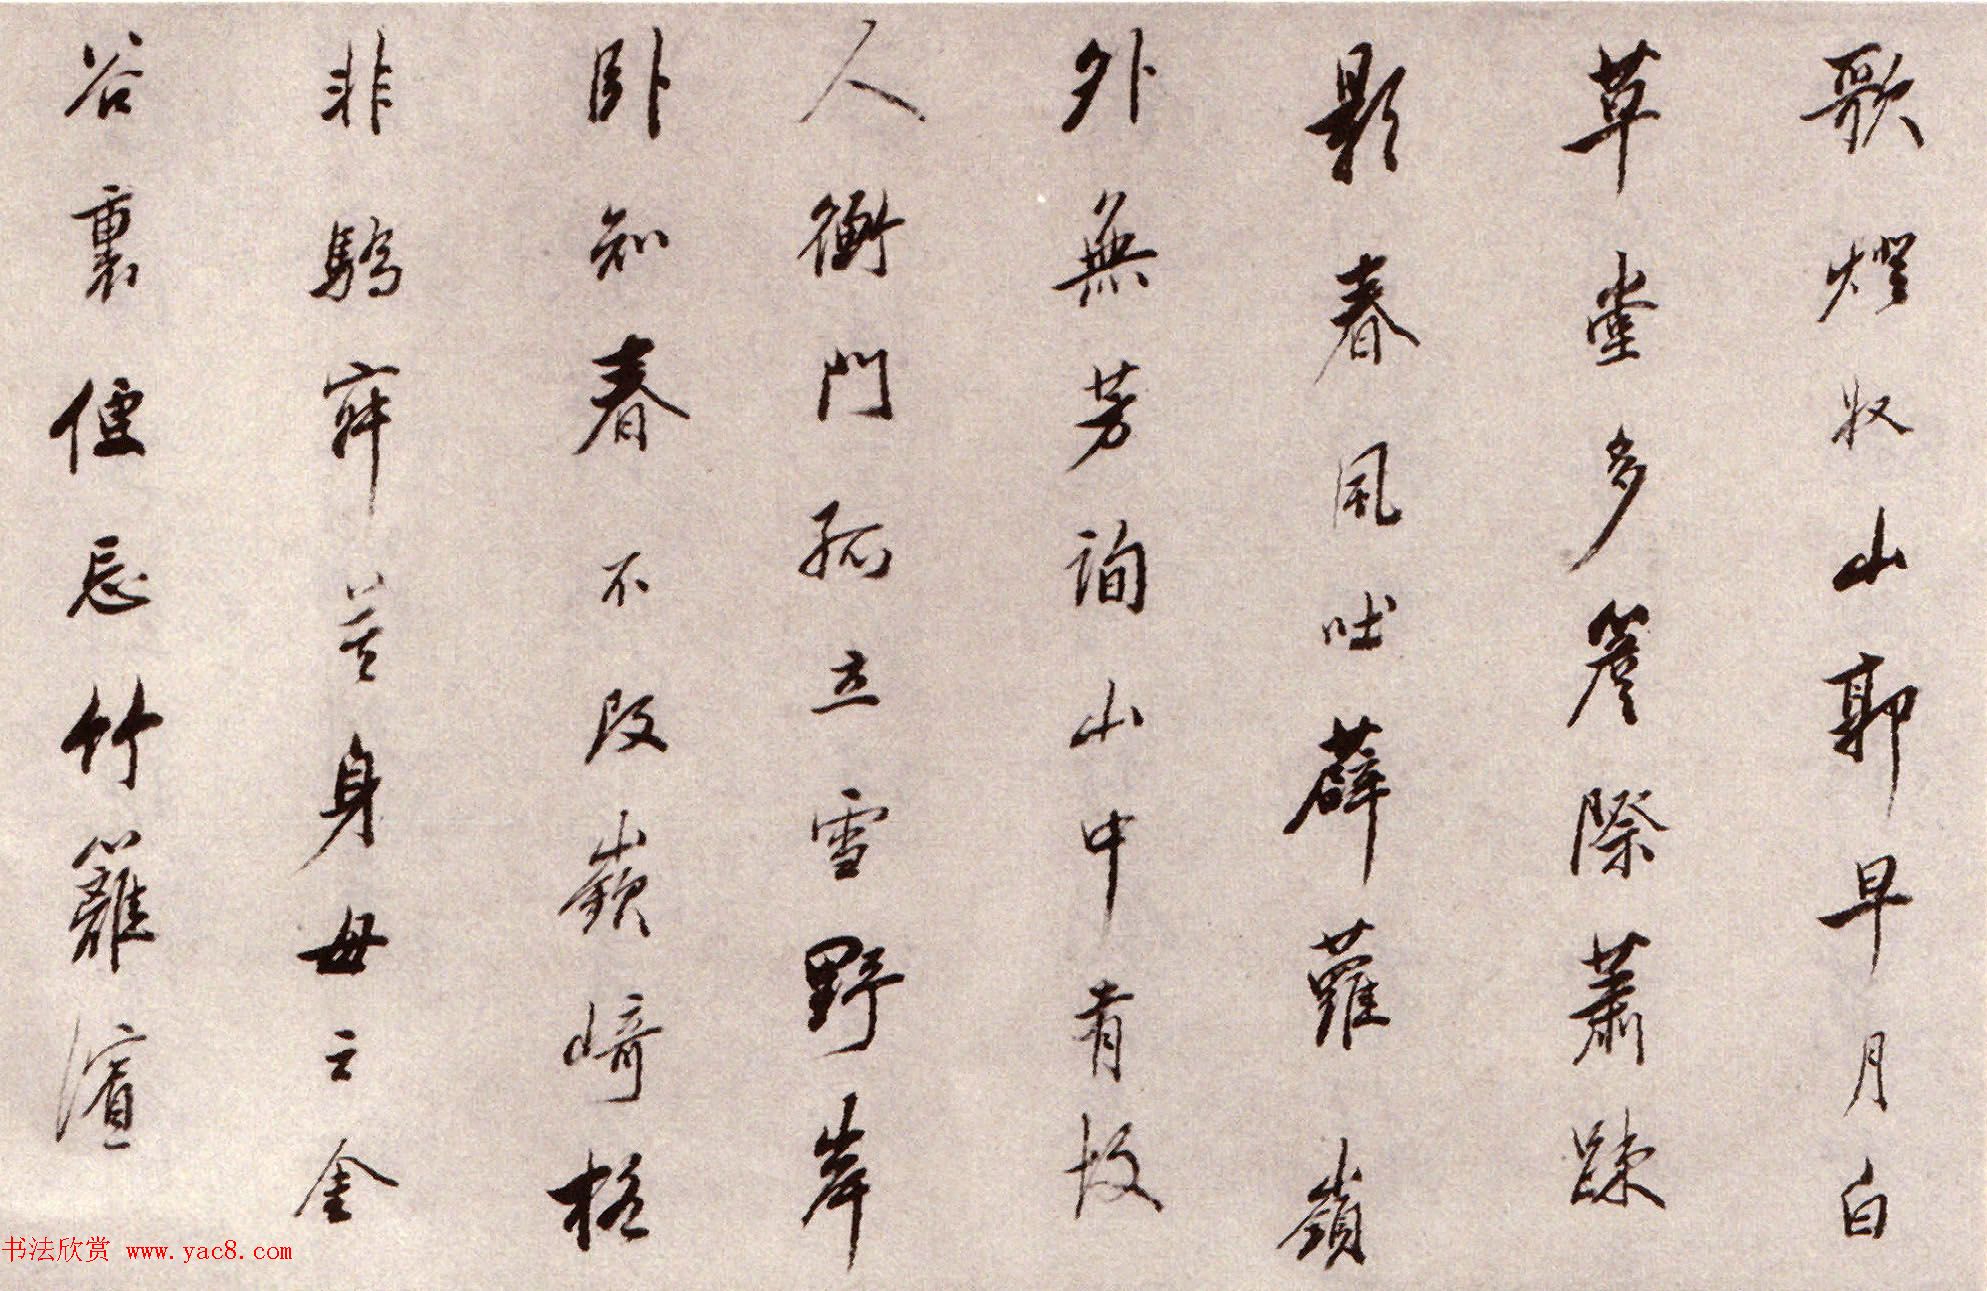 歌燈收山郭早月白
草堂多簷際蕭踈
影春風吐薜蘿嶺
外無芳詢山中有故
人衡門孤立雪野岸
臥知春不改嶔崎格
非驕寂苦身毋云金
谷裏僅忘竹籬濱
书法欣赏 www.yac8.com